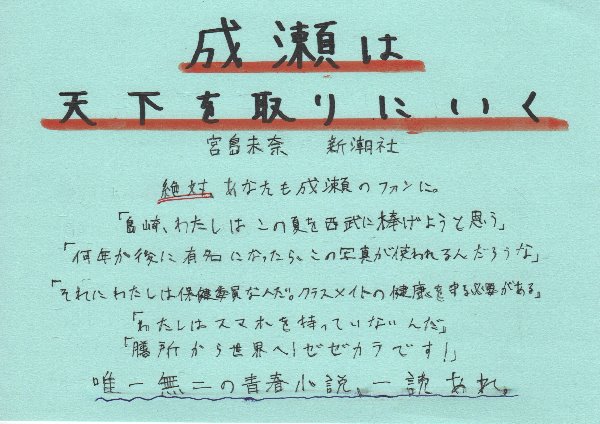 成瀬は
天下を取りにいく
宮島未奈　新潮社
絶対あなたも成瀬のファンに。
「島崎、わたしはこの夏を西武に捧げようと思う」
「何年か後に有名になったら、この写真が使われるんだろうな」
「それにわたしは保健委員な人だ。クラスメイトの健康を守る必要がある」
「わたしはスマホを持っていないんだ」
「膳所から世界へ！ゼゼカラです！」
唯一無二の青春小説、一読あれ。